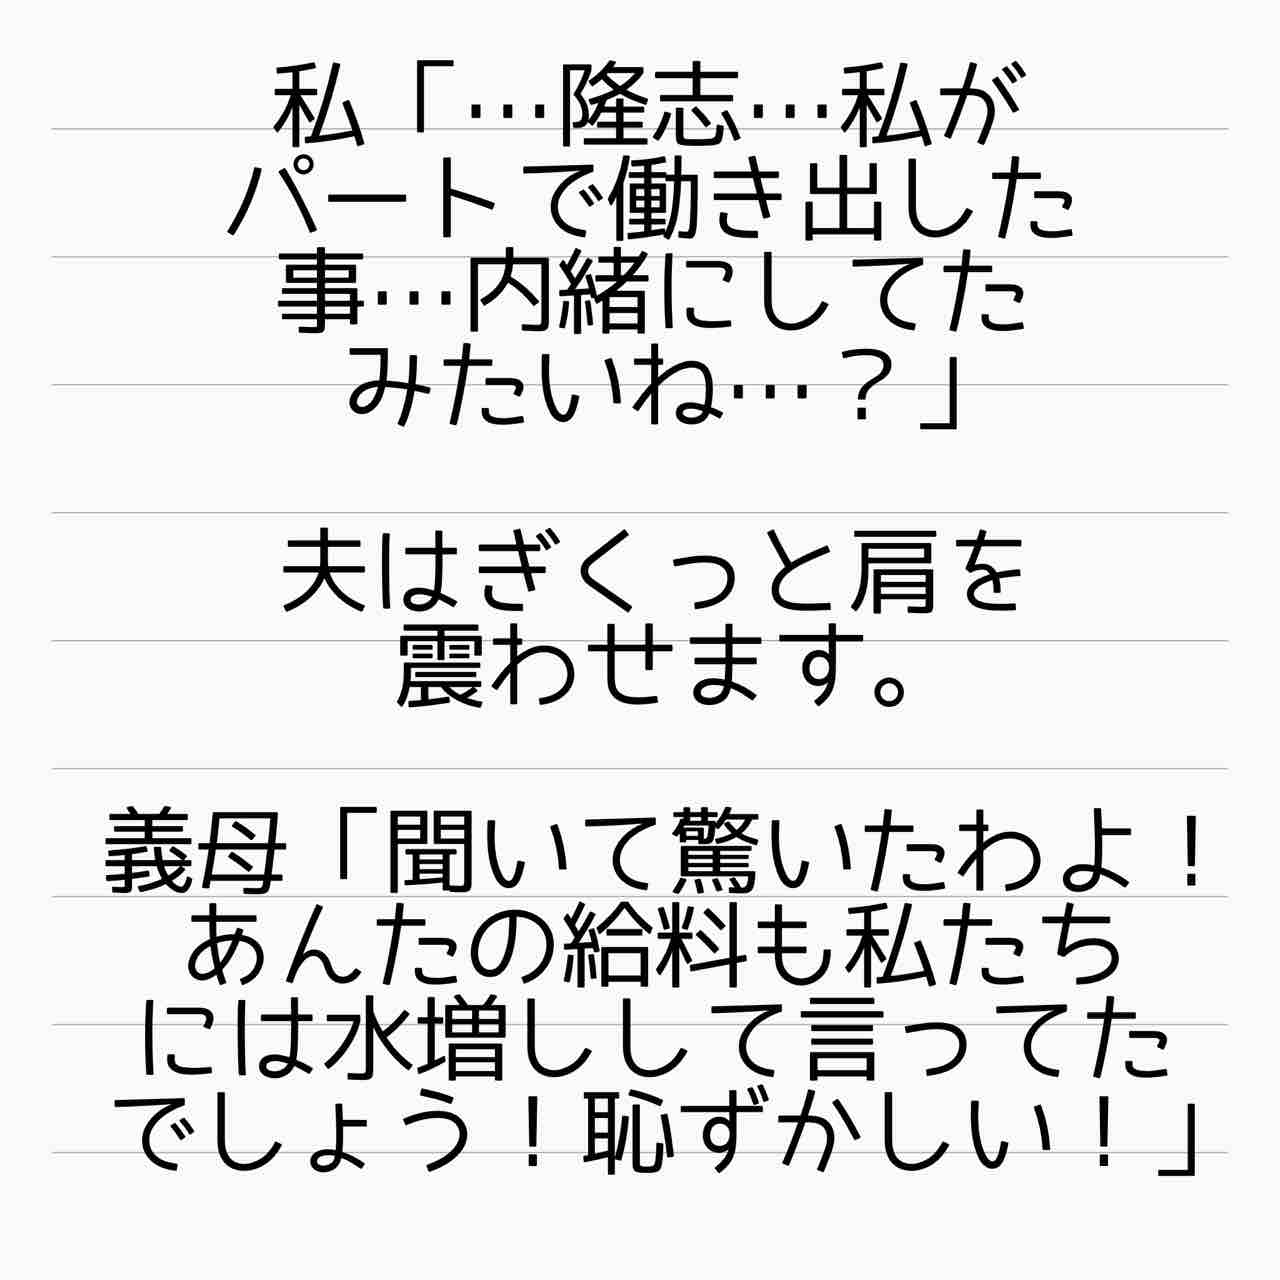 私「…隆志…私が
パートで働き出した
事…内緒にしてた
みたいね…？」
夫はぎくっと肩を
震わせます。
義母「聞いて驚いたわよ！
あんたの給料も私たち
には水増しして言ってた
でしょう！恥ずかしい！」